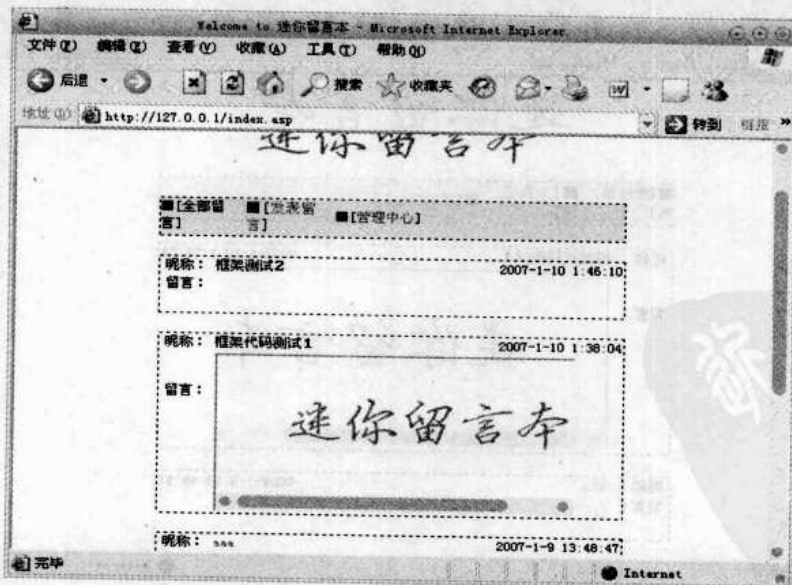 Welcome to 迷你留言本 - Microsoft Internet Explorer
文件(F) 编辑(E) 查看(V) 收藏(A) 工具(T) 帮助(H)
后退 搜索 收藏夹
地址(D) http://127.0.0.1/index.asp 转到 链接 »
迷你留言本
■[全部留言] ■[发表留言] ■[管理中心]
昵称: 框架测试2 2007-1-10 1:46:10
留言:
昵称: 框架代码测试1 2007-1-10 1:38:04
留言:
迷你留言本
昵称: aaa 2007-1-9 13:48:47
完毕 Internet